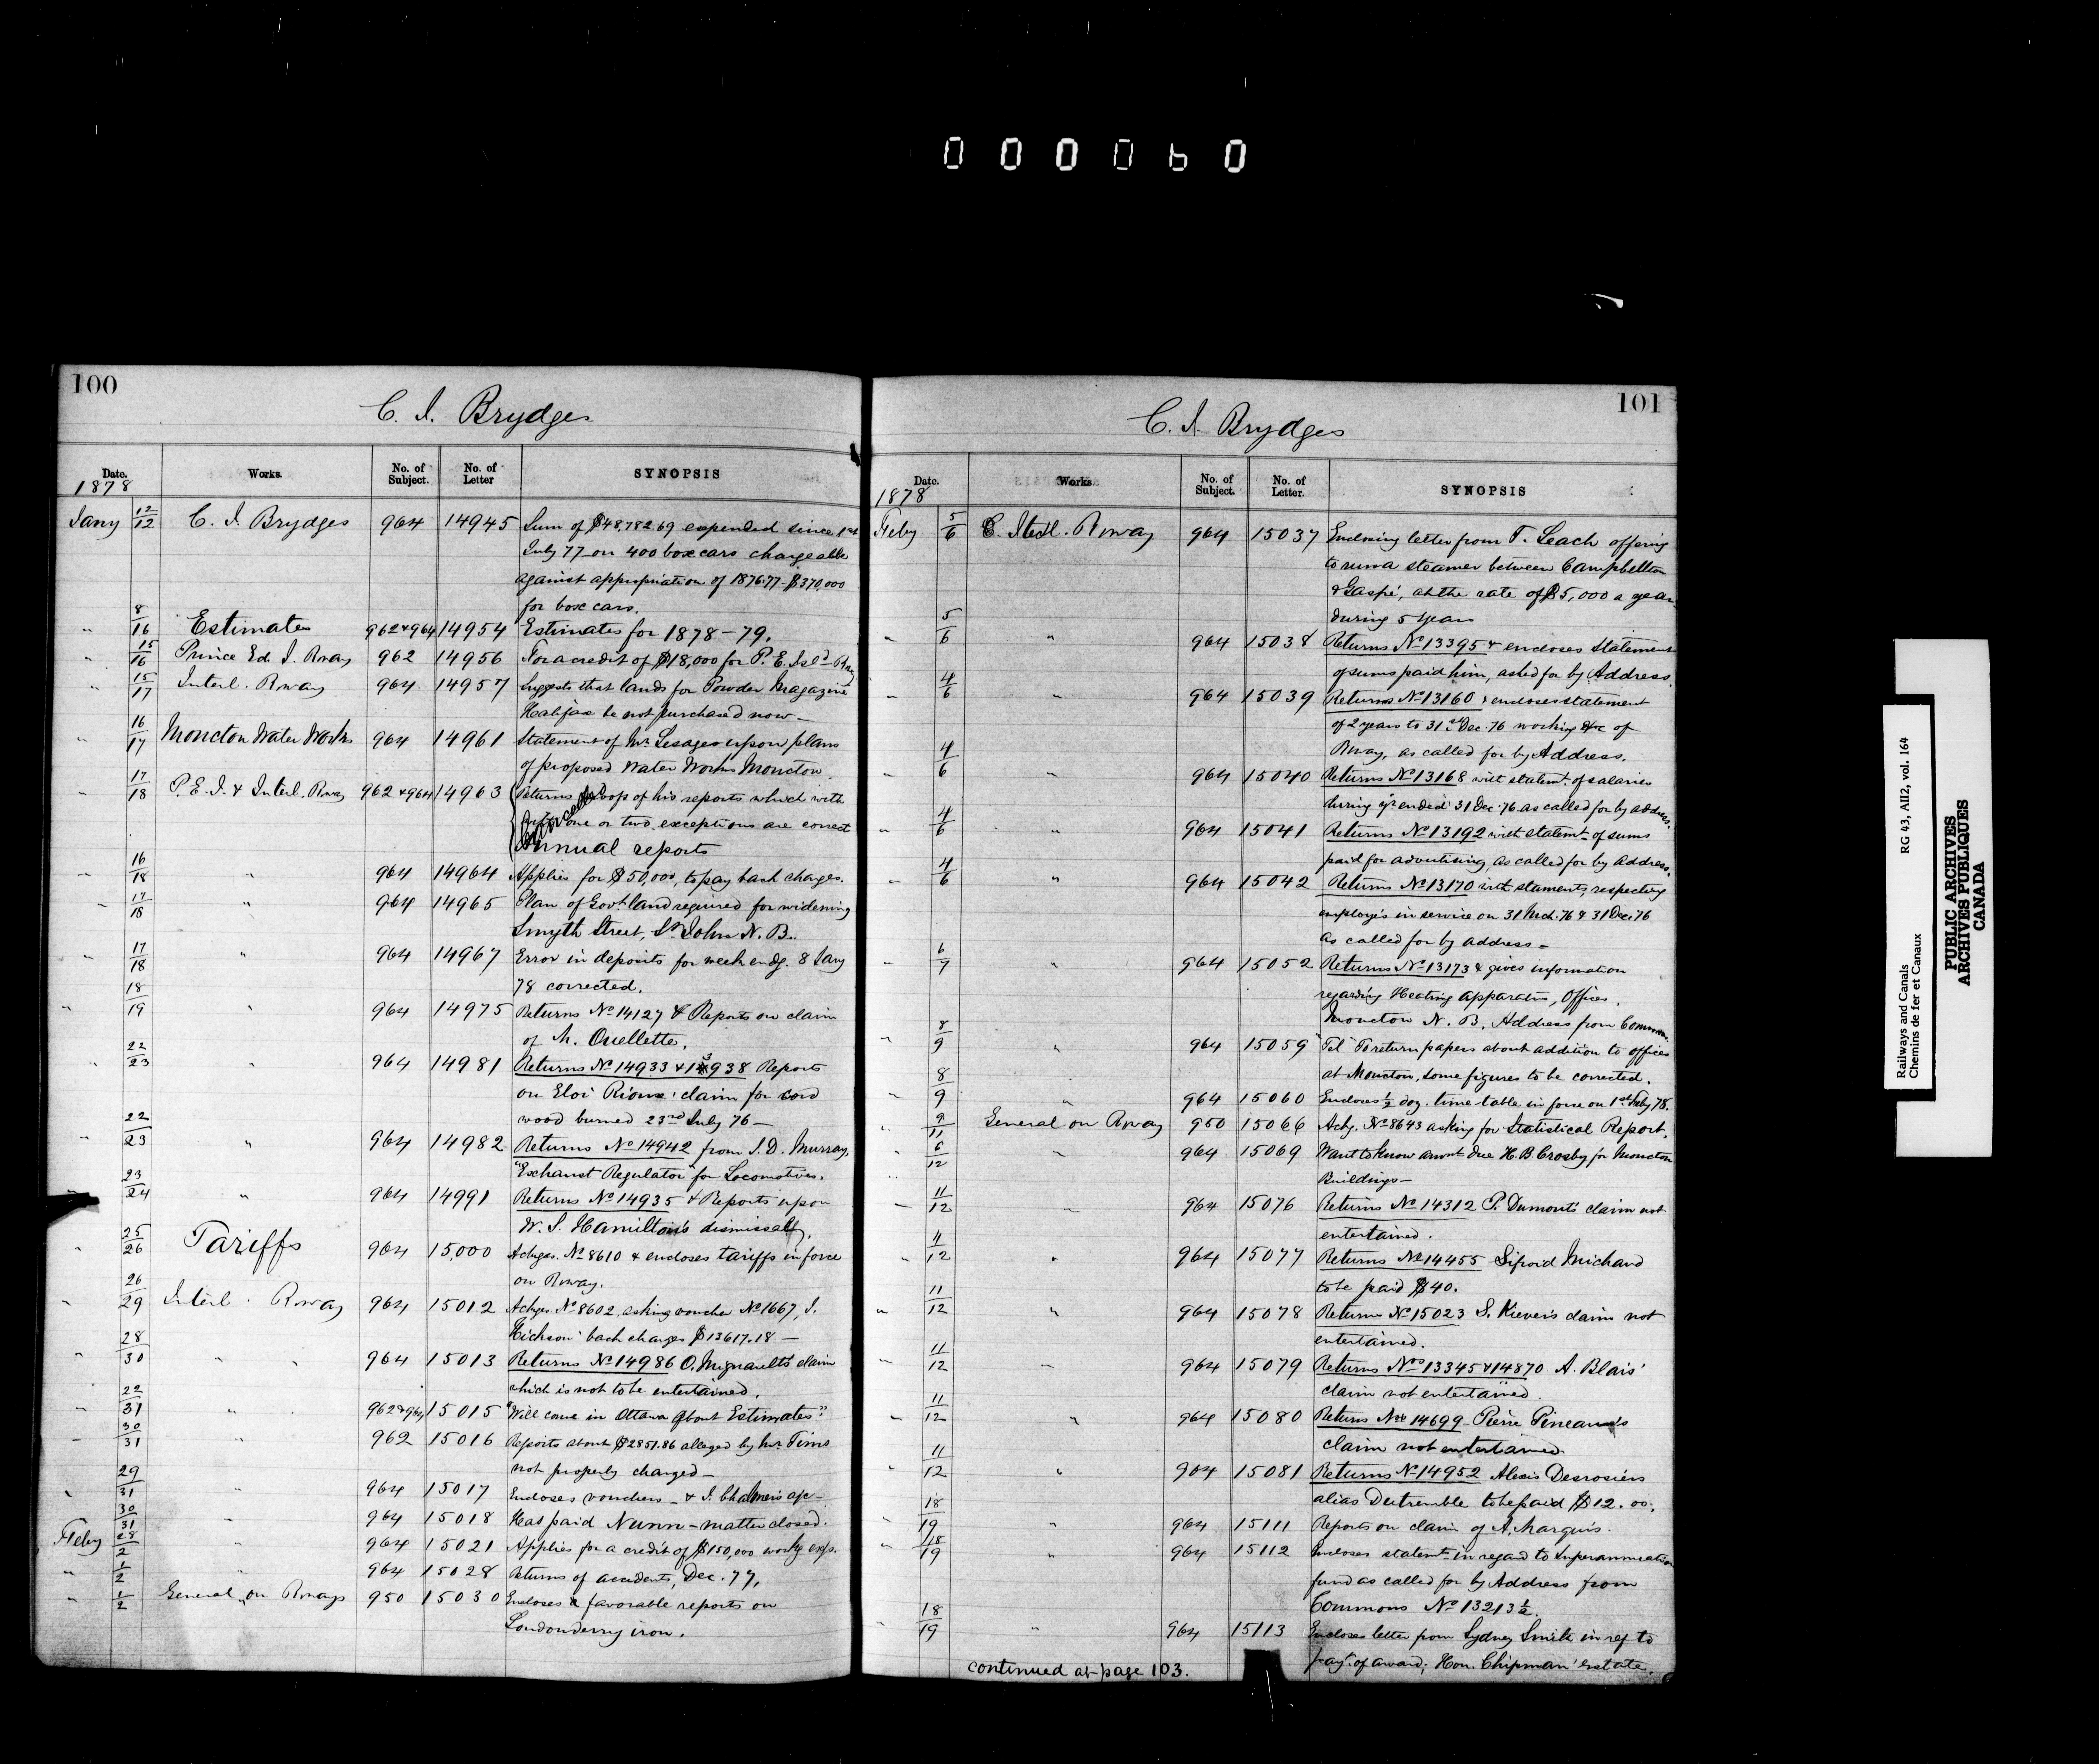 000060
100
C. J. Brydges
Date. Works. No. of Subject. No. of Letter SYNOPSIS
1878
Jany 12/12 C. J. Brydges 964 14945 Sum of $48,782.69 expended since 1st
July 77 on 400 box cars chargeable
against appropriation of 1876.77 - $370,000
for box cars.
" 8/16 Estimates 962 & 964 14954 Estimates for 1878-79.
" 15/16 Prince Ed. I. Rway 962 14956 For a credit of $18,000 for P. E. Isld Rway
" 15/17 Interl. Rway 964 14957 Suggests that lands for Powder Magazine
Halifax be not purchased now -
" 16/17 Moncton Water Works 964 14961 Statement of Mr Lesage upon plans
of proposed Water Works Moncton.
" 17/18 P. E. I. & Interl. Rway 962 & 964 14963 Returns copy of his reports which with
one or two exceptions are correct
Annual reports
Cancelled
" 16/18 " 964 14964 Applies for $50,000, to pay back charges.
" 17/18 " 964 14965 Plan of Govt land required for widening
Smyth Street, St John N. B.
" 17/18 " 964 14967 Error in deposits for week endg. 8 Jany
78 corrected.
" 18/19 " 964 14975 Returns No 14127 & Reports on claim
of M. Ouellette.
" 22/23 " 964 14981 Returns No 14933 & 14938 Reports
on Eloi Rioux' claim for cord
wood burned 23rd July 76 -
" 22/23 " 964 14982 Returns No 14942 from J. D. Murray,
"Exhaust Regulator" for Locomotives.
" 23/24 " 964 14991 Returns No 14935 & Reports upon
W. S. Hamilton's dismissal.
" 25/26 Tariffs 964 15,000 Ackges. No 8610 & encloses tariffs in force
on Rway.
" 26/29 Interl. Rway 964 15012 Ackges. No 8602, asking voucher No 1667, J.
Hickson' back charges $13617.18 -
" 28/30 " " 964 15013 Returns No 14986 O. Mignault's claim
which is not to be entertained.
" 22/31 " 962 & 964 15015 "Will come in Ottawa about Estimates."
" 30/31 " 962 15016 Reports about $2851.86 alleged by Mr Tims
not properly charged -
" 29/31 " 964 15017 Encloses vouchers - & J. Chalmers a/c -
" 30/31 " 964 15018 Has paid Nunn - matter closed.
Feby 28/2 " 964 15021 Applies for a credit of $150,000 workg exps.
" 1/2 " 964 15028 Returns of accidents, Dec. 77,
" 1/2 General on Rways 950 15030 Encloses 2 favorable reports on
Londonderry iron.
101
C. J. Brydges
Date. Works. No. of Subject. No. of Letter. SYNOPSIS
1878
Feby 5/6 Rway 964 15037 Enclosing letter from T. Leach offering
to run a steamer between Campbellton
& Gaspé, at the rate of $5,000 a year
during 5 years
" 5/6 " 964 15038 Returns No 13395 & encloses Statement
of sums paid him, asked for by Address.
" 4/6 " 964 15039 Returns No 13160 & encloses statement
of 2 years to 31st Dec. 76 working &c of
Rway, as called for by Address.
" 4/6 " 964 15040 Returns No 13168 with statemt. of salaries
during yr ended 31 Dec. 76 as called for by address.
" 4/6 " 964 15041 Returns No 13192 with statemt of sums
paid for advertising, as called for by address.
" 4/6 " 964 15042 Returns No 13170 with staments respecting
employés in service on 31 Mch. 76 & 31 Dec. 76
as called for by address -
" 6/7 " 964 15052 Returns No 13173 & gives information
regarding Heating Apparatus, Offices,
Moncton N. B, Address from Commons
" 8/9 " 964 15059 "Tel" To return papers about addition to offices
at Moncton, some figures to be corrected.
" 8/9 " 964 15060 Encloses 1/2 doz. time table in force on 1st Feby 78.
" 9/11 General on Rway 950 15066 Ackg. No 8643 asking for Statistical Report.
" 6/12 " 964 15069 Want to know amnt due H. B. Crosby for Moncton
Buildings -
" 11/12 " 964 15076 Returns No 14312 P. Dumont's claim not
entertained.
" 11/12 " 964 15077 Returns No 14455 Michaud
to be paid $40.
" 11/12 " 964 15078 Returns No 15023 S. claim not
entertained.
" 11/12 " 964 15079 Returns Nos 13345 & 14870 A. Blais'
claim not entertained.
" 11/12 " 964 15080 Returns No 14699 Pierre Pineau's
claim not entertained
" 11/12 " 964 15081 Returns No 14952 Alexis Desrosiers
alias Dutremble to be paid $12.00.
" 18/19 " 964 15111 Reports on claim of A. Marquis.
" 18/19 " 964 15112 Encloses statemt in regard to Superannuation
fund as called for by Address from
Commons No 13213 1/2.
" 18/19 " 964 15113 Encloses letter from Sydney Smith in ref to
payt. of award; Hon. Chipman' estate.
continued at page 103.
Railways and Canals RG 43, AII2, vol. 164
Chemins de fer et Canaux
PUBLIC ARCHIVES
ARCHIVES PUBLIQUES
CANADA